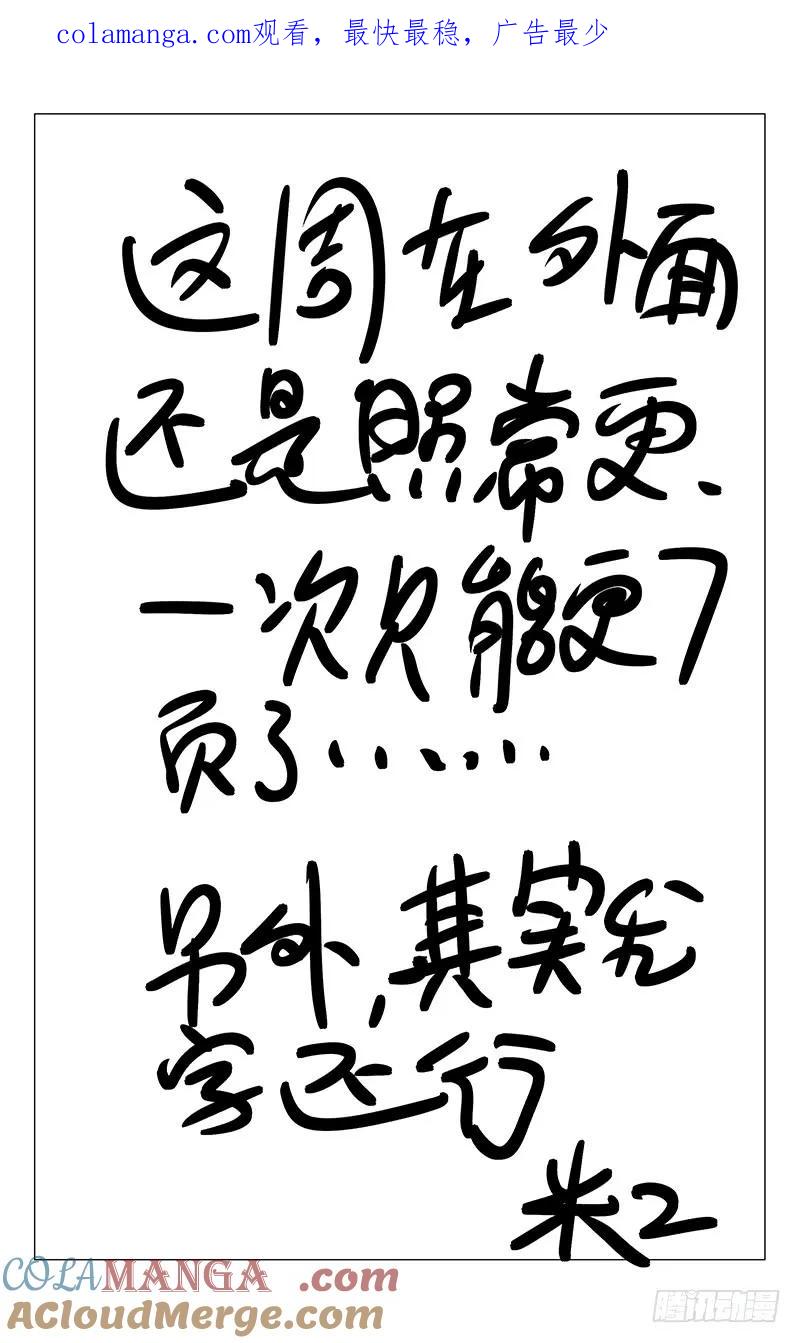 colamanga.com观看，最快最稳，广告最少
这周在外面
还是照常更、
一次只能更7
页了......
另外,其实我
字还行
米二
COLAMANGA.com
ACloudMerge.com
腾讯动漫